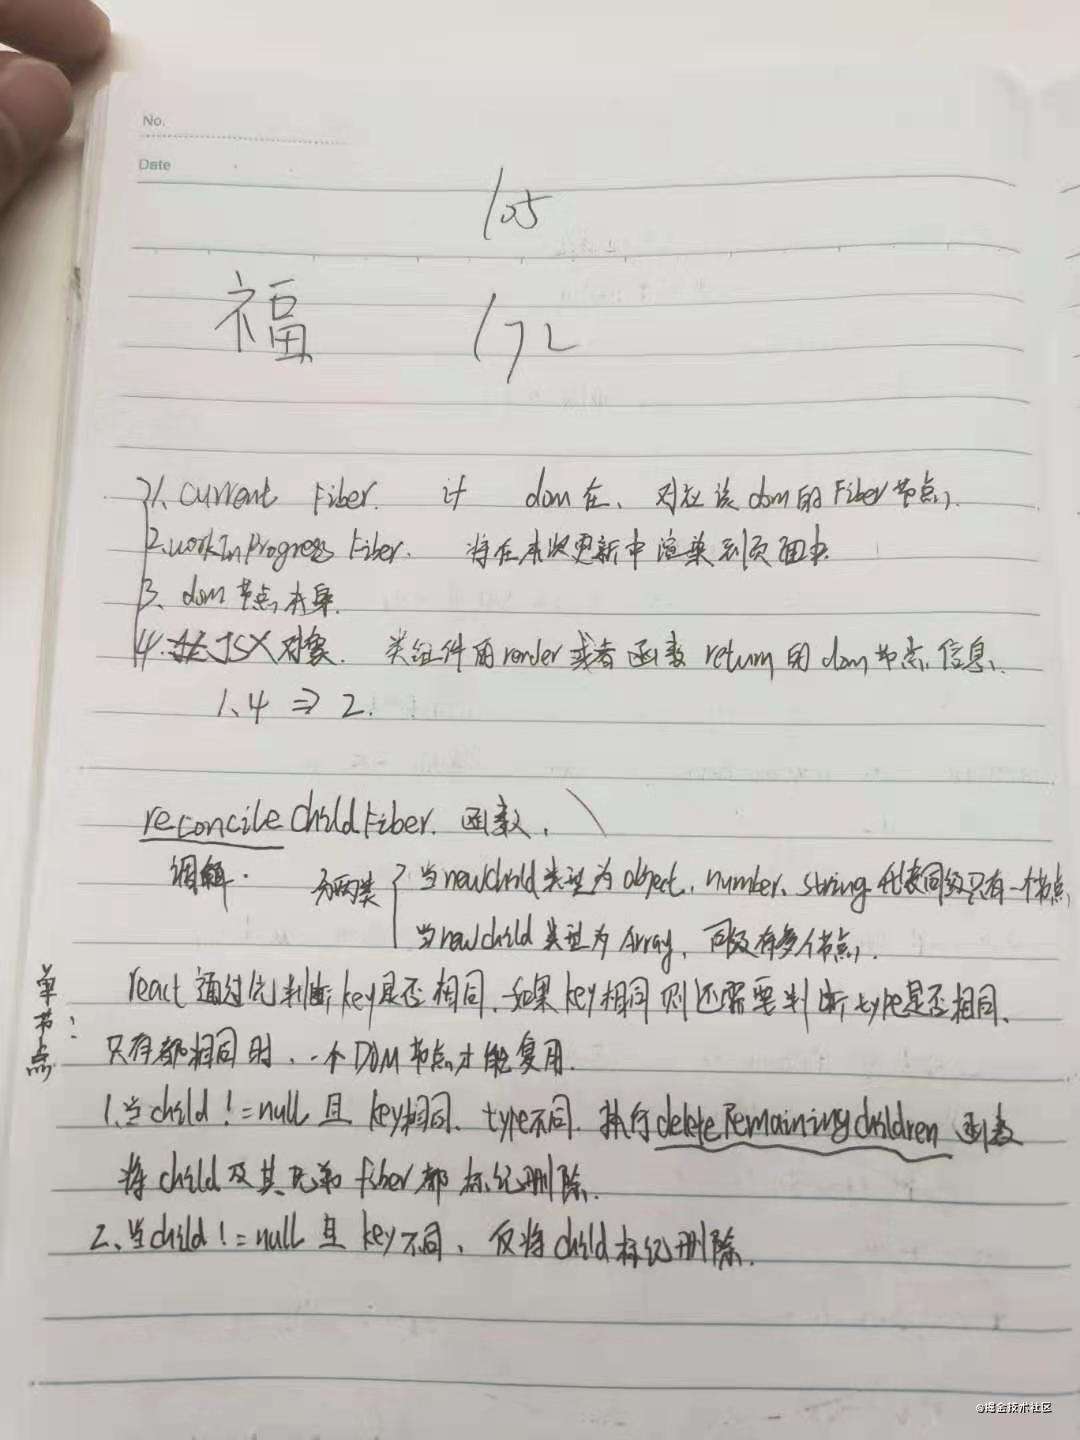 No.
Date
105
福 172
1. current Fiber. if dom在、对应该dom的Fiber节点、
2. workInProgress Fiber. 将在本次更新中渲染到页面中.
3、dom节点本身.
4. JSX对象. 类组件的render或者函数return的dom节点信息、
1、4 ⇒ 2.
reconcileChildFiber. 函数、
调和. 分两类 { 当newChild类型为object、number、string 代表同级只有一个节点
当newChild类型为Array、同级有多个节点、
单节点:
react通过先判断key是否相同、如果key相同则还需要判断type是否相同、
只有都相同时、一个DOM节点才能复用.
1.当child != null 且 key相同、type不同. 执行deleteRemainingChildren函数
将child及其兄弟fiber都标记删除.
2、当child != null 且 key不同、仅将child标记删除.
@掘金技术社区